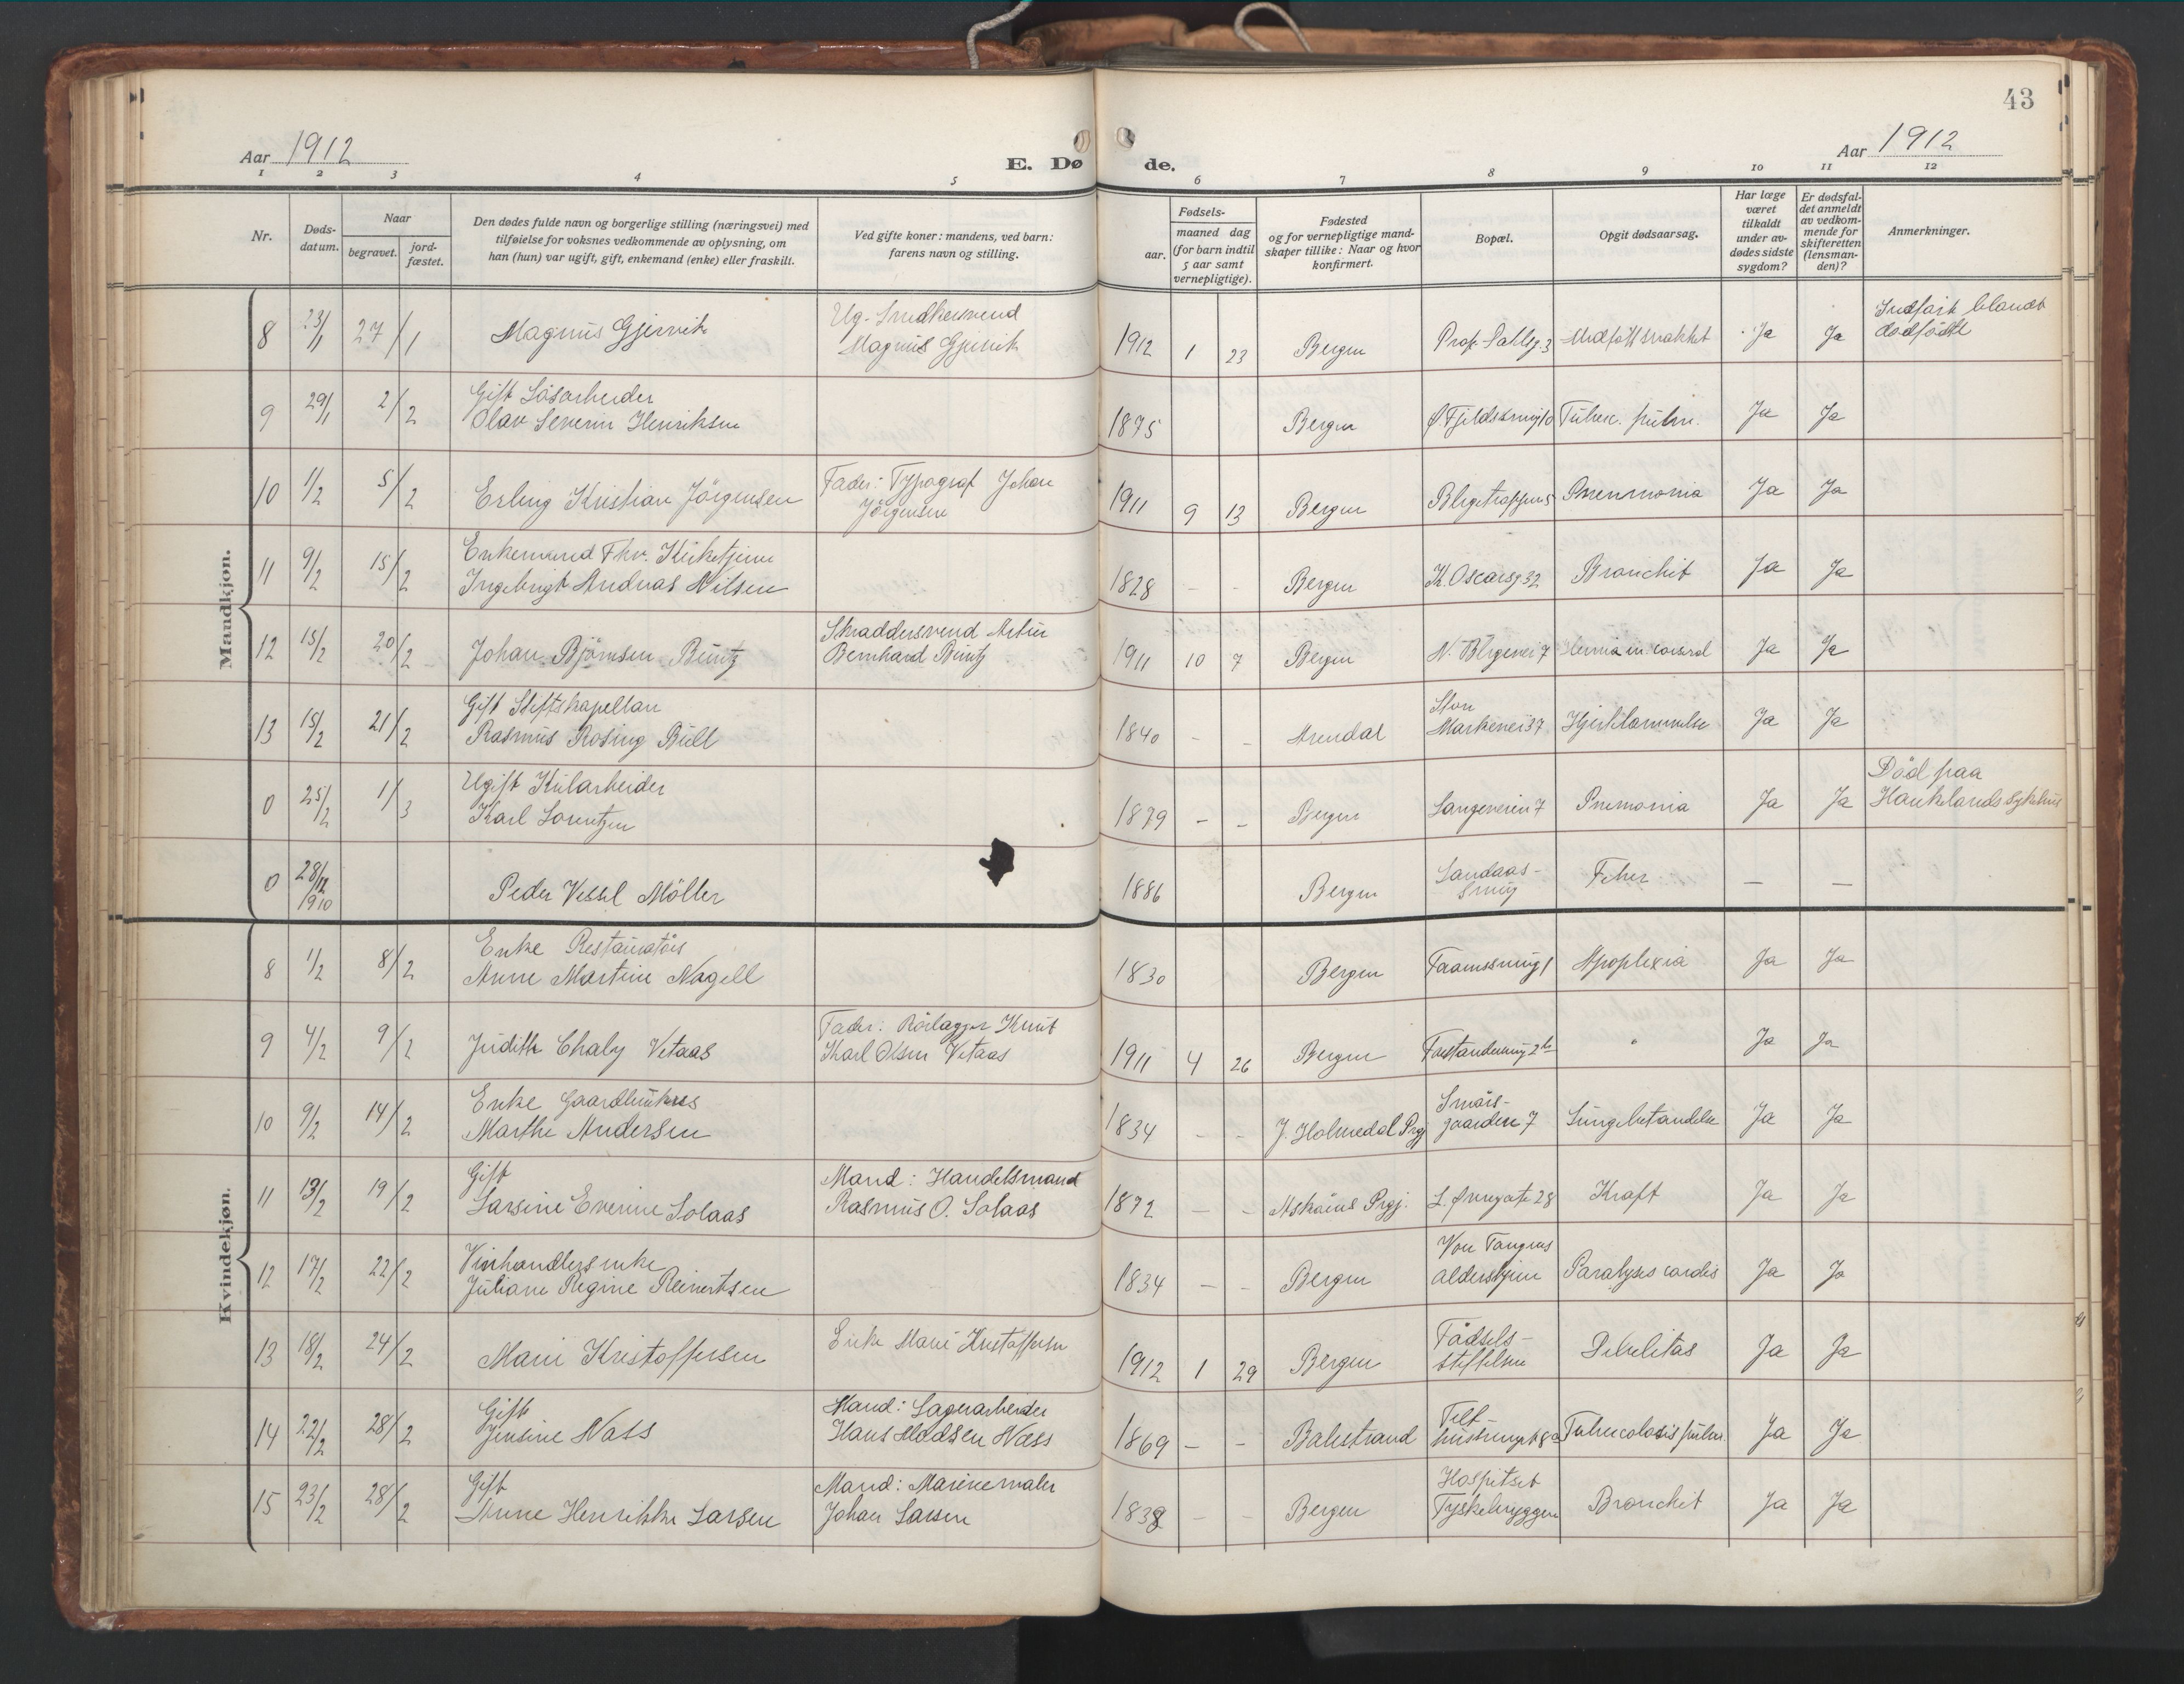 43
Aar 1912
E. Dø
de.
Aar 1912
1 2 3 4 5 6 7 8 9 10 11 12
Nr.
Døds-
datum.
Naar
begravet.
jord-
fæstet.
Den dødes fulde navn og borgerlige stilling (næringsvei) med
tilføielse for voksnes vedkommende av oplysning, om
han (hun) var ugift, gift, enkemand (enke) eller fraskilt.
Ved gifte koner: mandens, ved barn:
farens navn og stilling.
Fødsels-
aar.
maaned dag
(for barn indtil
5 aar samt
vernepligtige).
Fødested
og for vernepligtige mand-
skaper tillike: Naar og hvor
konfirmert.
Bopæl.
Opgit dødsaarsag.
Har læge
været
tilkaldt
under av-
dødes sidste
sygdom?
Er dødsfal-
det anmeldt
av vedkom-
mende for
skifteretten
(lensman-
den)?
Anmerkninger.
Mandkjøn.
8 23/1 27/1 Magnus Gjervik
Ug. Snedkersvend
Magnus Gjervik
1912 1 23 Bergen Prof. Dahlsg. 3 Ja Ja
Indført blandt
dødfødte
9 29/1 2/2 Gift Løsarbeider
Olav Severin Henriksen
1875 Bergen Ø. Fjeldsmug 10 Tuberc. pulm. Ja Ja
10 1/2 5/2 Erling Kristian Jörgensen
Fader: Typograf Johan
Jörgensen
1911 9 13 Bergen Pneumonia Ja Ja
11 9/2 15/2 Enkemand Fhv. Kirketjener
Ingebrigt Andreas Nilsen
1828 - - Bergen K. Oscarsg 32 Bronchit Ja Ja
12 15/2 20/2 Johan Björnsen Buntz
Skraddersvend Artur
Bernhard Buntz
1911 10 7 Bergen N. Blegevei 7 Hernia in Ja Ja
13 15/2 21/2 Gift Stiftskapellan
Rasmus Rosing Bull
1840 - - Arendal
Store
Markevei 37 Hjertelammelse Ja Ja
0 25/2 1/3 Ugift Kularbeider
Karl Lorentzen
1879 - - Bergen Langeveien 7 Pnemonia Ja Ja
Död paa
Haukelands sykehus
0 28/12 1910 Peder Vessel Möller
1886 Bergen
Landaas-
smug
Feber - -
Kvindekjøn.
8 1/2 8/2 Enke Restauratörs
Anne Martine Nagell
1830 Bergen Apoplexia Ja Ja
9 4/2 9/2 Judith Chaly Vetaas
Fader: Rörlægger Knut
Karl Olsen Vetaas
1911 4 26 Bergen Ja Ja
10 9/2 14/2 Enke Gaardbrukers
Marthe Andersen
1834 - - J. Holmedal Prgj
Smørs-
gaarden 7 Lungebetændelse Ja Ja
11 13/2 19/2 Gift
Larsine Evenine Solaas
Mand: Handelsmand
Rasmus O. Solaas
1872 - - Askøens Prgj. L. Øvregate 28 Kraft Ja Ja
12 17/2 22/2 Vinhandlers enke
Juliane Regine Reinertsen
1834 - - Bergen
Von Tangens
aldershjem Paralyses cordis Ja Ja
13 18/2 24/2 Marie Kristoffersen
Enke Marie Kristoffersen
1912 1 29 Bergen
Födsels-
stiftelsen Debilitas Ja Ja
14 22/2 28/2 Gift
Jensine Næss
Mand: Lagerarbeider
Hans Madsen Næss
1869 - - Balestrand Tuberculosis pulm. Ja Ja
15 23/2 28/2 Gift
Anne Henrikke Larsen
Mand: Marinemaler
Johan Larsen
1838 - - Bergen
Hospitset
Tyskebryggen Bronchit Ja Ja